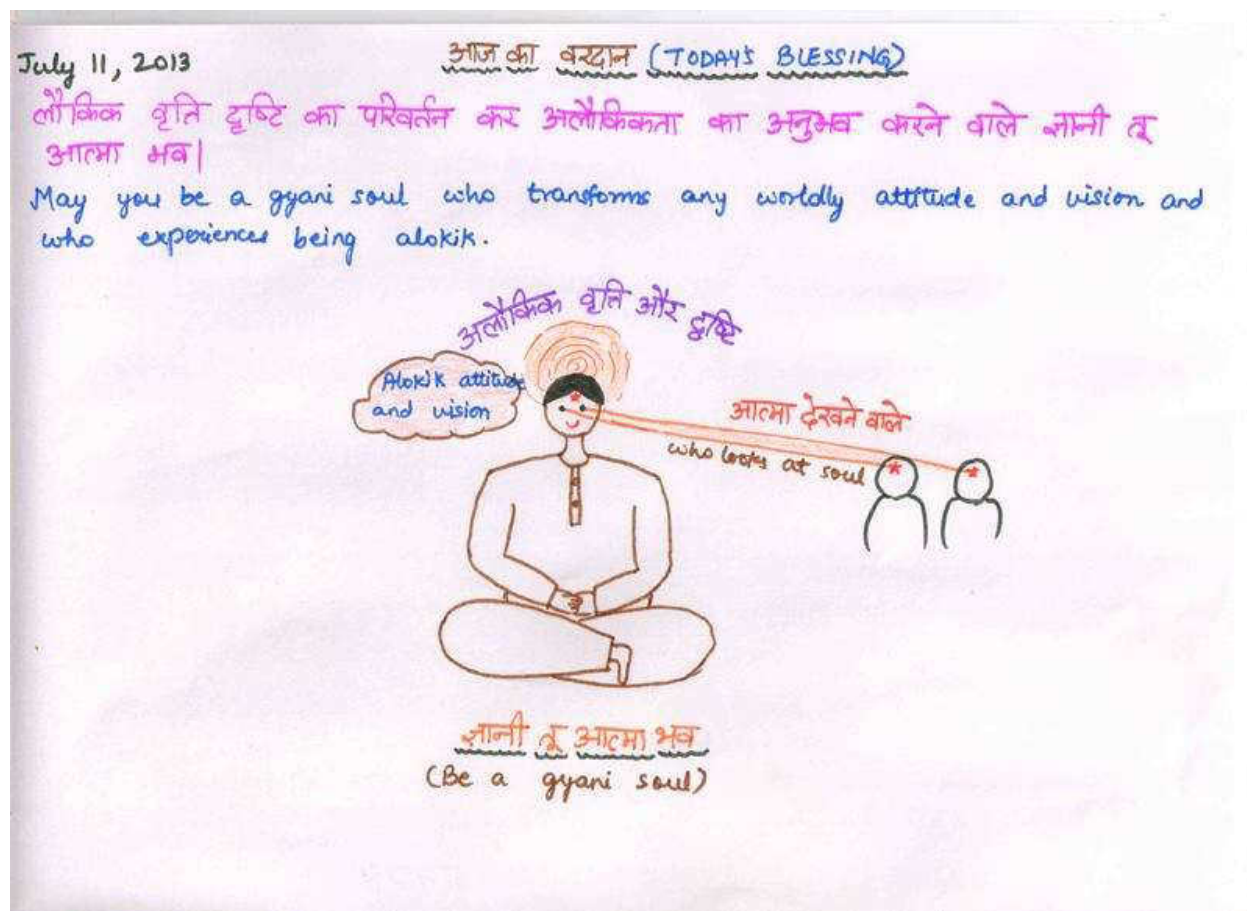 July 11, 2013
आज का वरदान (TODAY'S BLESSING)
लौकिक वृति दृष्टि का परिवर्तन कर अलौकिकता का अनुभव करने वाले ज्ञानी तू
आत्मा भव|
May you be a gyani soul who transforms any worldly attitude and vision and
who experiences being alokik.
अलौकिक वृति और दृष्टि
Alokik attitude
and vision
आत्मा देखने वाले
who looks at soul
ज्ञानी तू आत्मा भव
(Be a gyani soul)